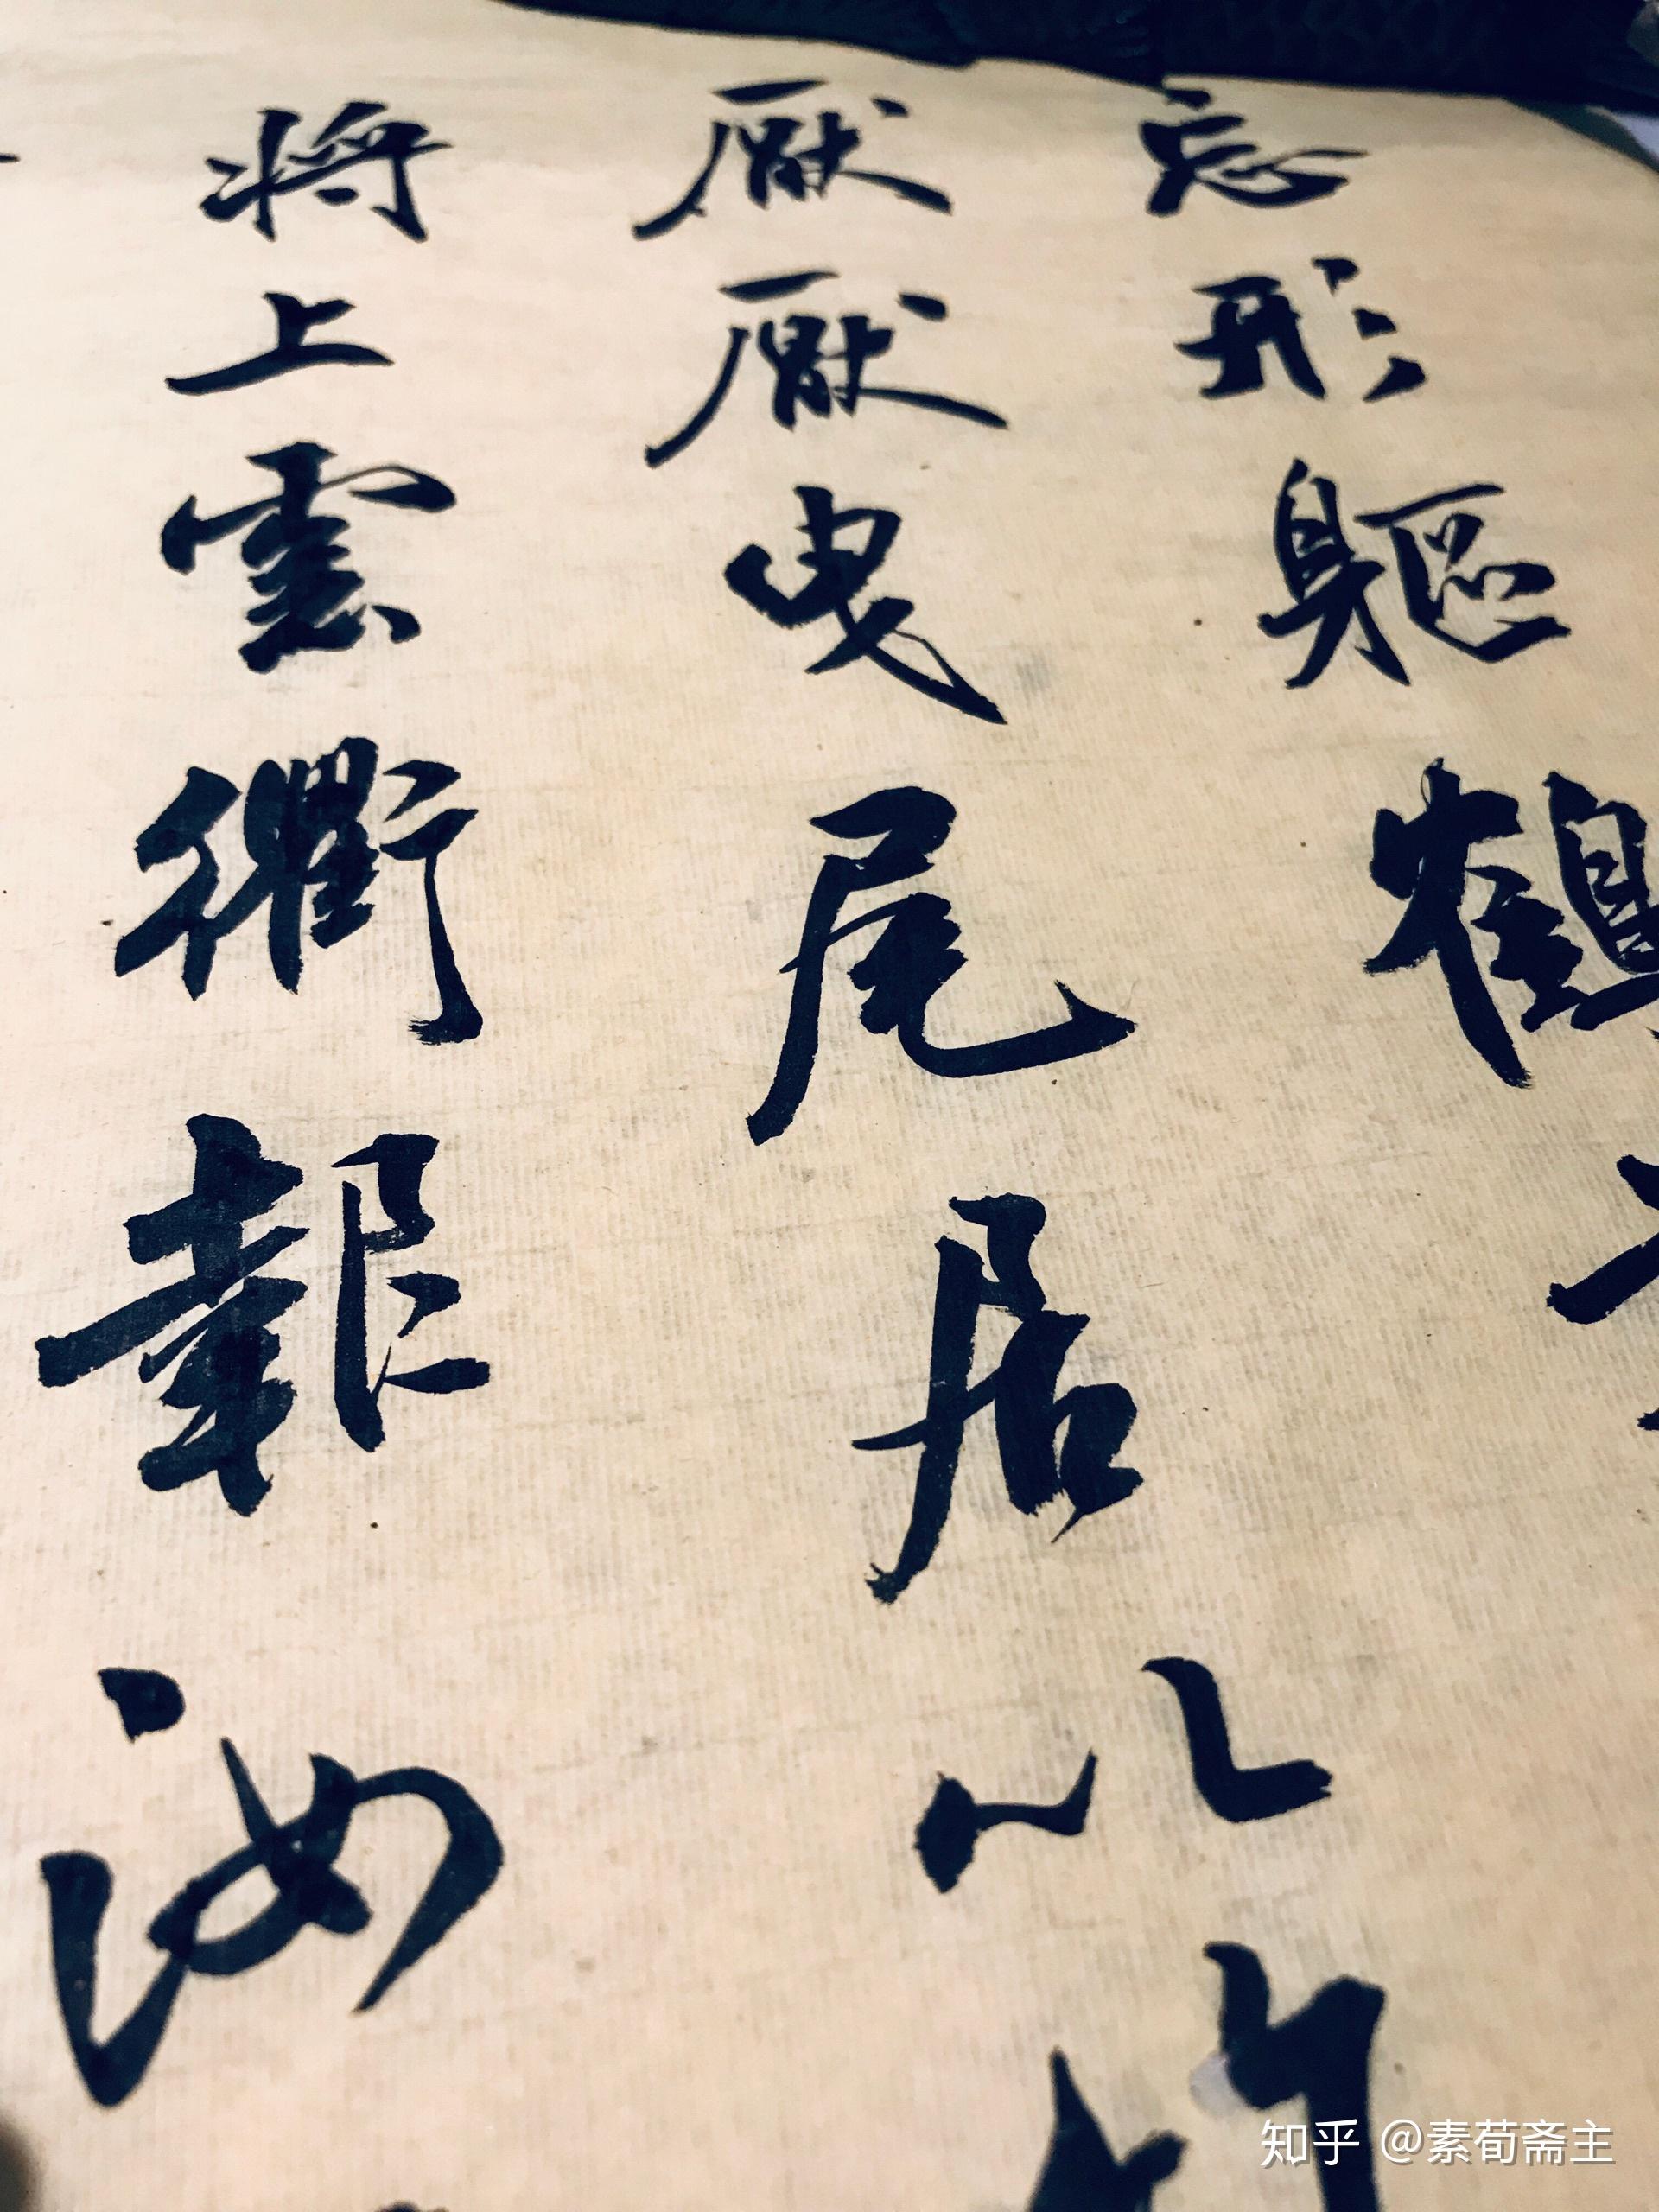 忘形軀鶴
厭厭曳尾居以竹
將上雲衢報汝
知乎 @素荀斋主